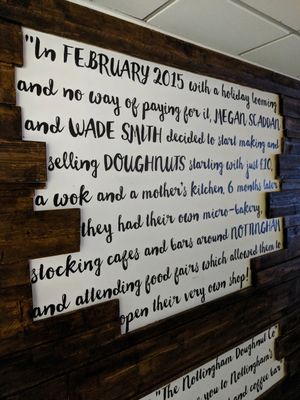 "In FEBRUARY 2015 with a holiday looming
and no way of paying for it, MEGAN SCADDAN
and WADE SMITH decided to start making and
selling DOUGHNUTS starting with just £10,
a wok and a mother's kitchen. 6 months later
they had their own micro-bakery,
stocking cafes and bars around NOTTINGHAM
and attending food fairs which allowed them to
open their very own shop!
"The Nottingham Doughnut Co
you to Nottingham's
and coffee bar